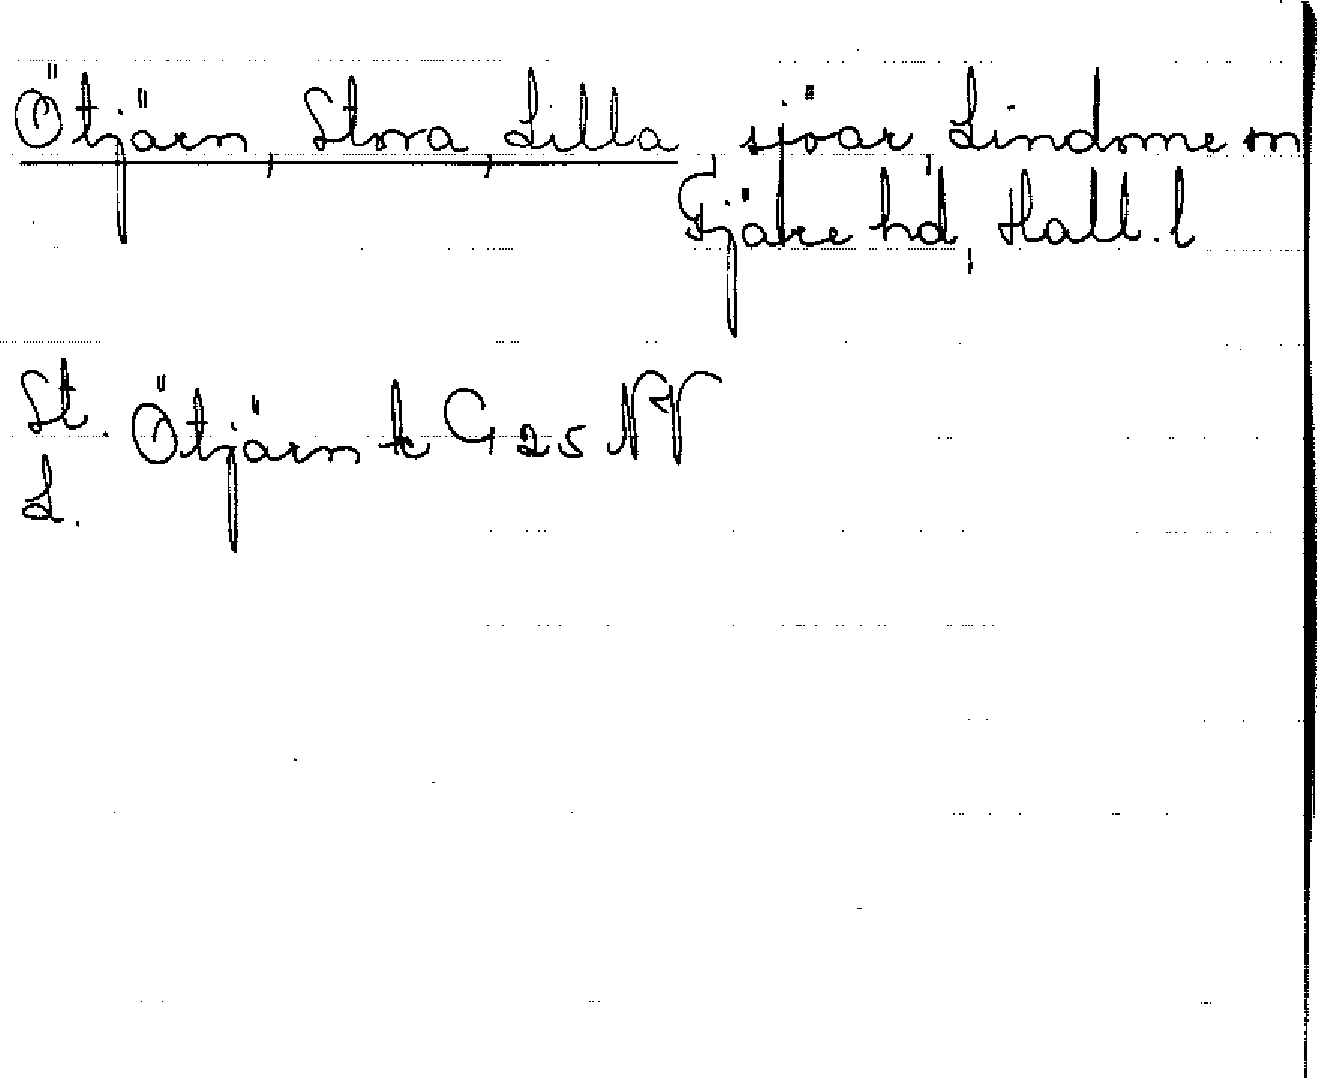 Ötjärn, Stora, Lilla, sjöar, Lindome sn
Fjäre hd, Hall. l
St. Ötjärn k G 25 NV
L.